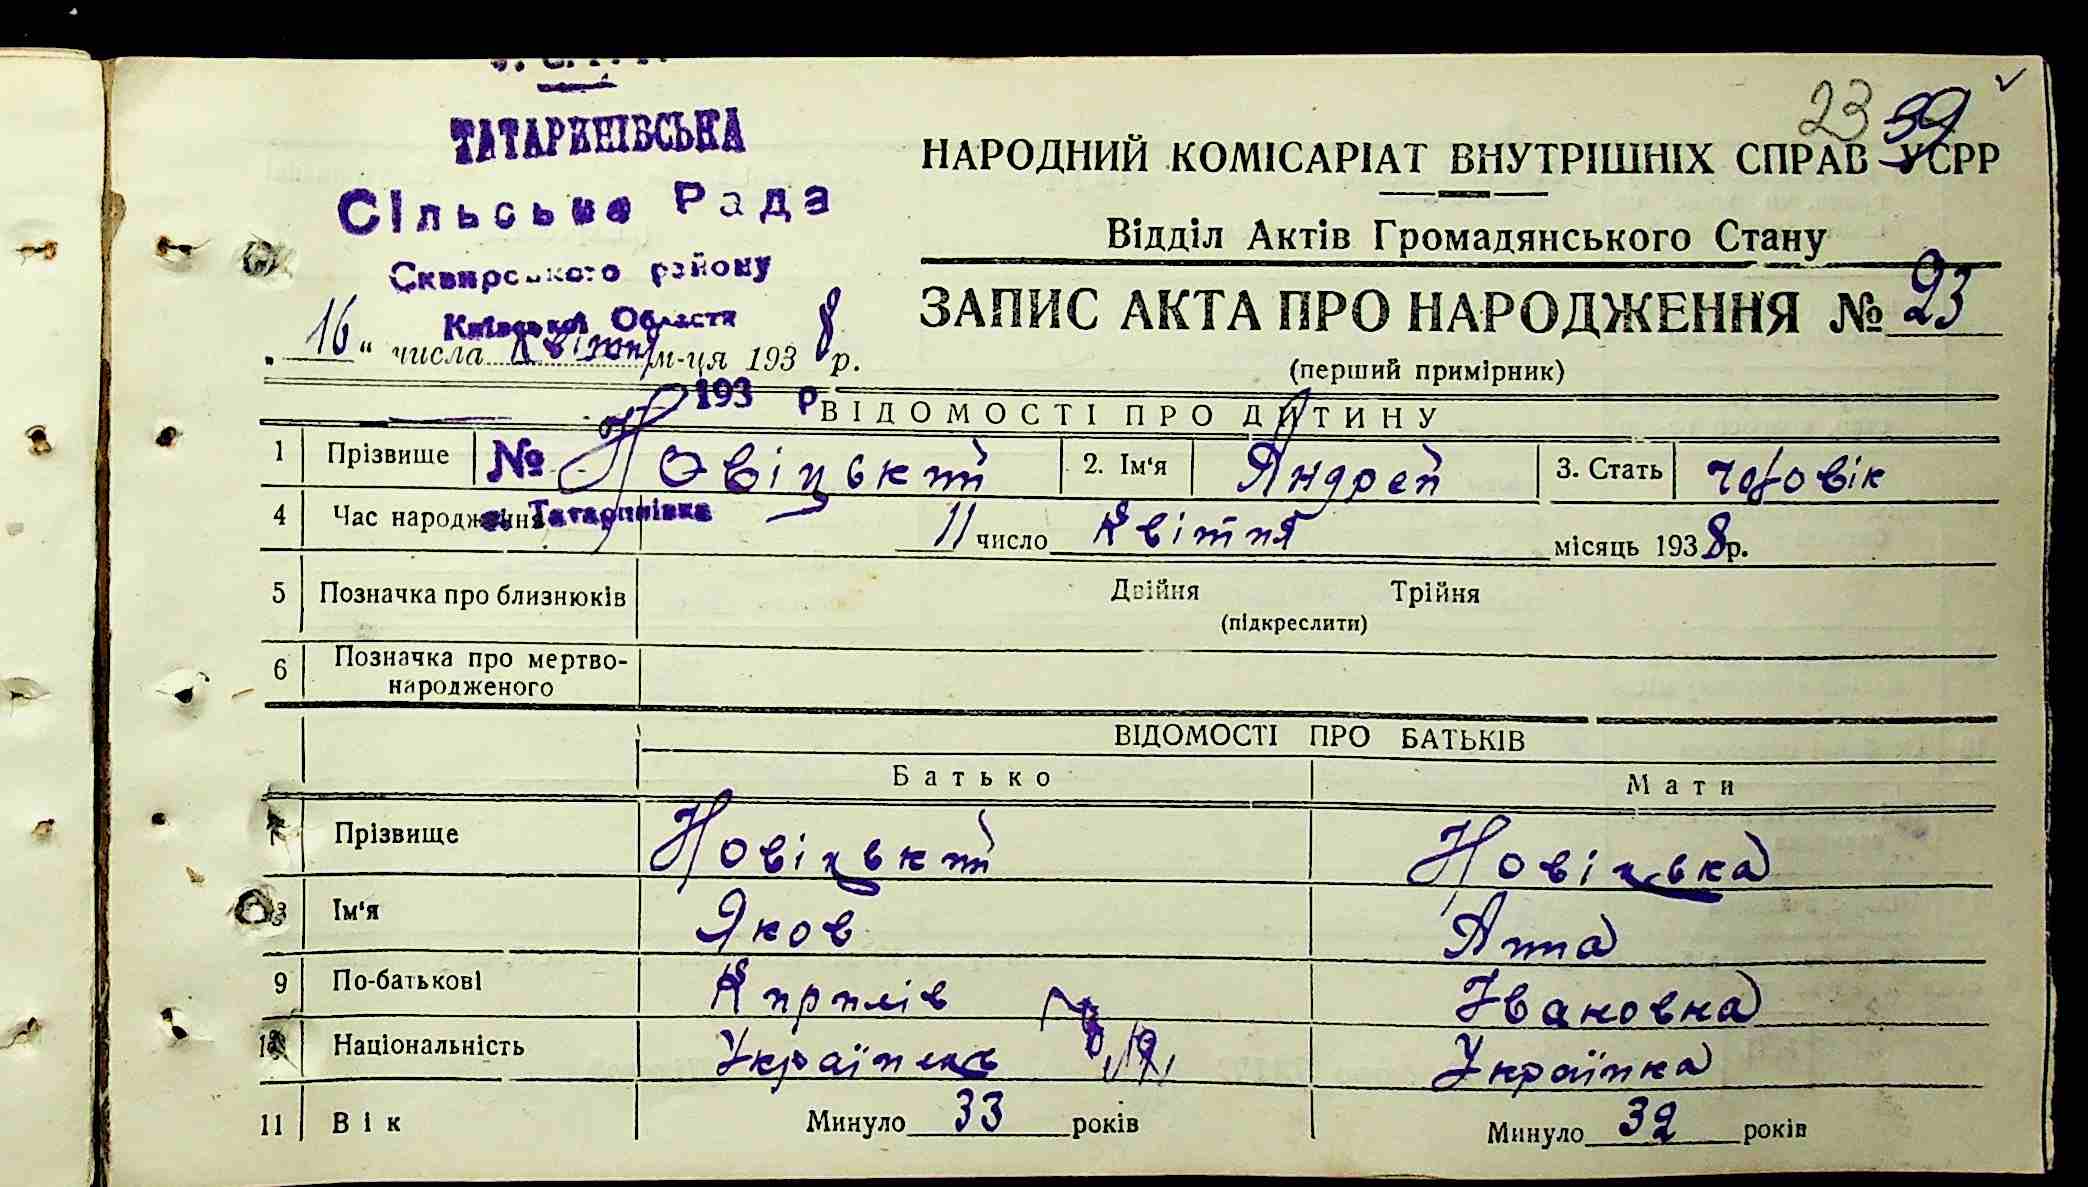 23 39
ТАТАРИНІВСЬКА
Сільська Рада
Сквирського району
Київської Области
НАРОДНИЙ КОМІСАРІАТ ВНУТРІШНІХ СПРАВ УСРР
Відділ Актів Громадянського Стану
ЗАПИС АКТА ПРО НАРОДЖЕННЯ № 23
(перший примірник)
„16“ числа Квітня м-ця 1938 р.
193 р
ВІДОМОСТІ ПРО ДИТИНУ
1 Прізвище № Новіцький 2. Ім'я Андрей 3. Стать чоловік
с. Татаринівка
4 Час народження 11 число Квітня місяць 1938 р.
5 Позначка про близнюків Двійня Трійня
(підкреслити)
6 Позначка про мертво-
народженого
ВІДОМОСТІ ПРО БАТЬКІВ
Батько Мати
7 Прізвище Новіцький Новіцька
8 Ім'я Яков Анна
9 По-батькові Кирилів Івановна
10 Національність Українець Українка
11 Вік Минуло 33 років Минуло 32 років